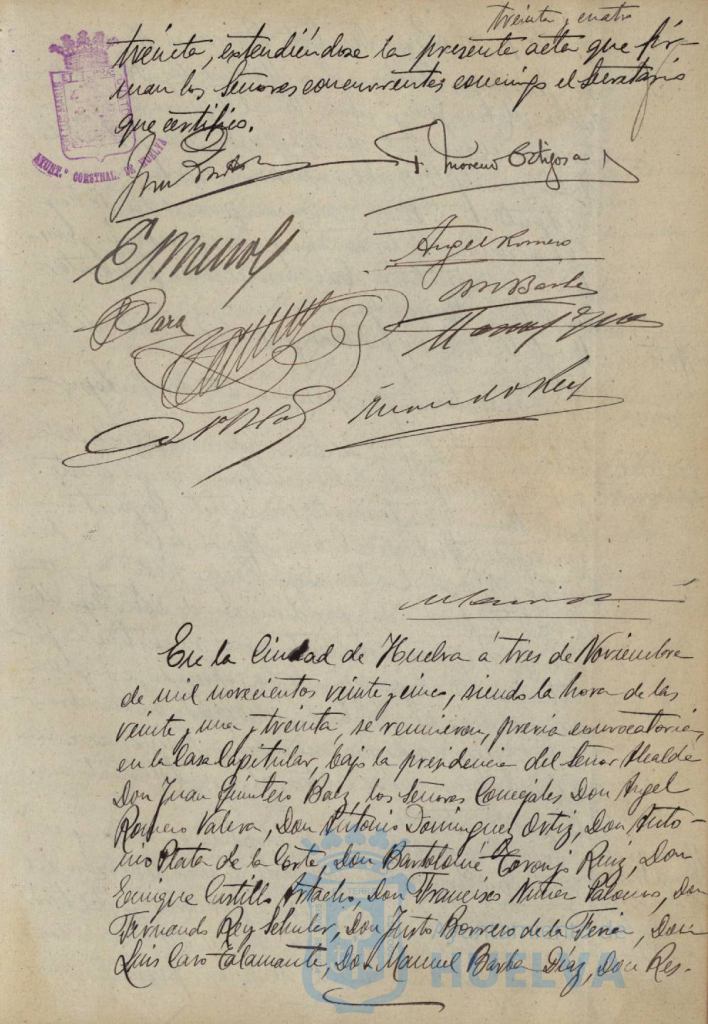 treinta y cuatro
treinta, extendiéndose la presente acta que fir-
man los Señores concurrentes conmigo el Secretario
que certifico.
AYUNT.º CONSTNAL. DE HUELVA
F. Moreno Ortigosa
E Muñoz
Angel Romero
M Barba
Para
Fernando Rey
En la Ciudad de Huelva á tres de Noviembre
de mil novecientos veinte y cinco, siendo la hora de las
veinte y una y treinta, se reunieron, previa convocatoria,
en la Casa Capitular, bajo la presidencia del Señor Alcalde
Don Juan Quintero Baez, los Señores Concejales Don Angel
Romero Don Antonio Dominguez Ortiz, Don Anto-
nio Plata de la Corte, Don Bartolomé Toronjo Ruiz, Don
Enrique Castillo Don Francisco Palomo, Don
Fernando Rey Don Justo Borrero de la Feria, Don
Luis Caro Talamante, Don Manuel Barba Diaz, Don Res-
HUELVA